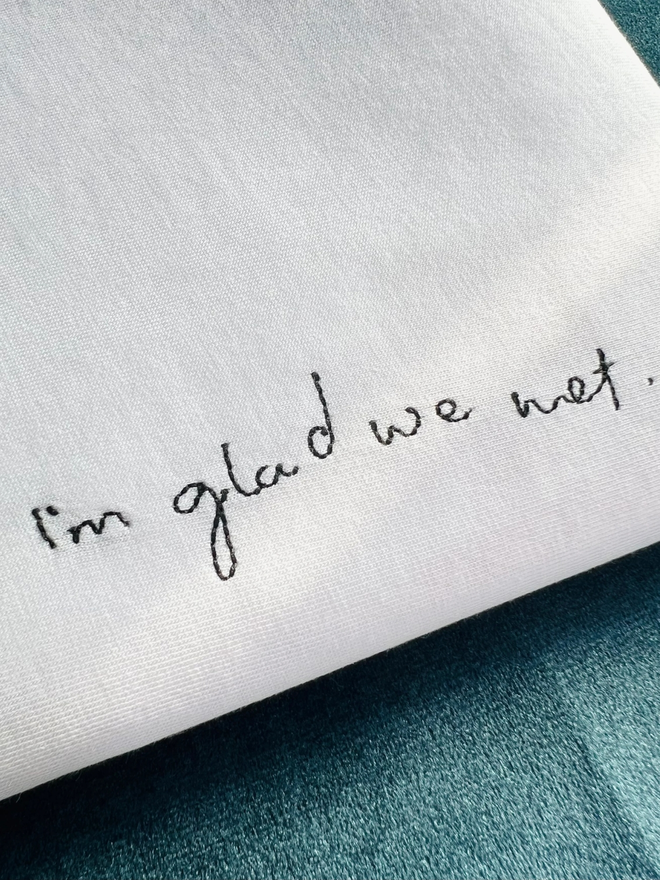 i'm glad we met.